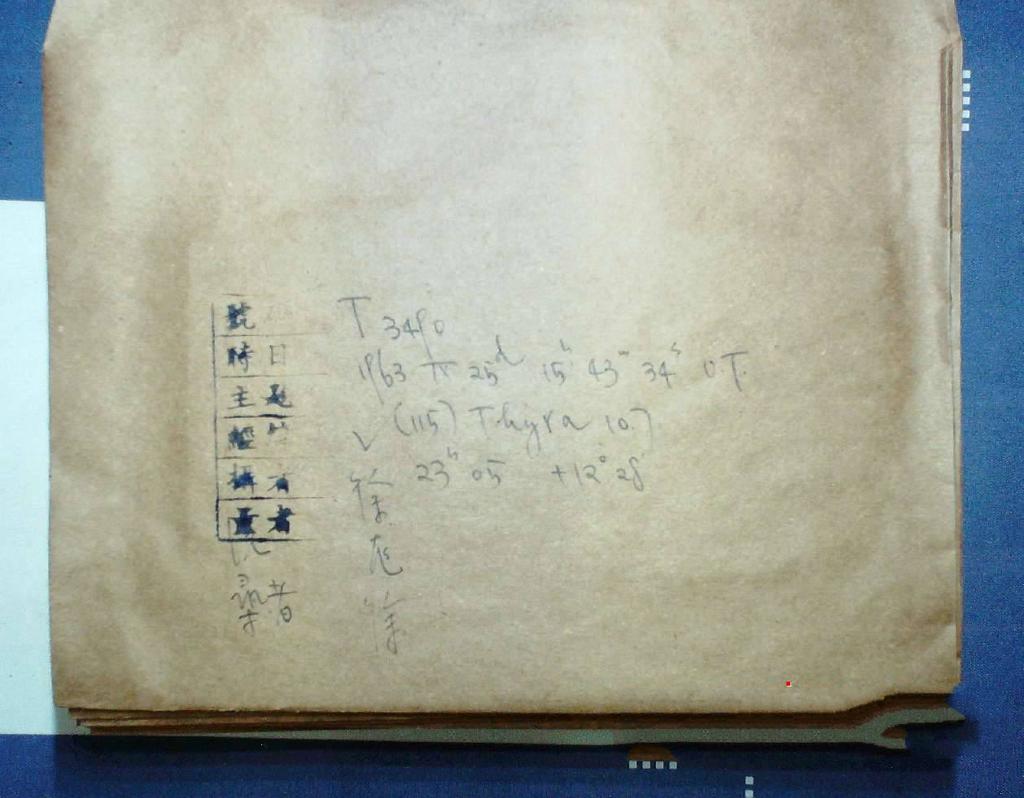 號
T 3490
時日
1963 IX 25ᵈ 15ʰ 43ᵐ 34ˢ UT.
主題
(115) Thyra 10.7
✓ 23ʰ 05 +12° 28
攝者
徐
者
龙
录者
徐